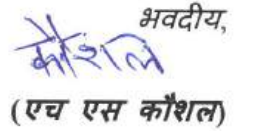 भवदीय,
कौशल
(एच एस कौशल)